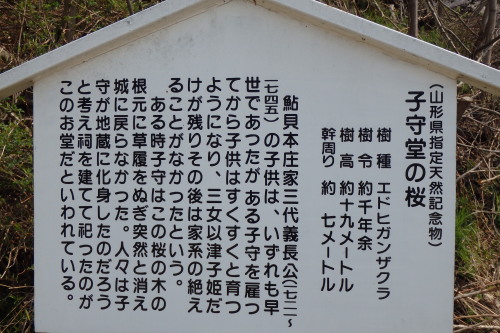 (山形県指定天然記念物)
子守堂の桜
樹 種 エドヒガンザクラ
樹 令 約千年余
樹 高 約十九メートル
幹周り 約 七メートル
鮎貝本庄家三代義長公(一七二一~
一七四五)の子供は、いずれも早
世であったがある子守を雇っ
てから子供はすくすくと育つ
ようになり、三女以津子姫だ
けが残りその後は家系の絶え
ることがなかったという。
ある時子守はこの桜の木の
根元に草履をぬぎ突然と消え
城に戻らなかった。人々は子
守が地蔵に化身したのだろう
と考え祠を建てて祀ったのが
このお堂だといわれている。